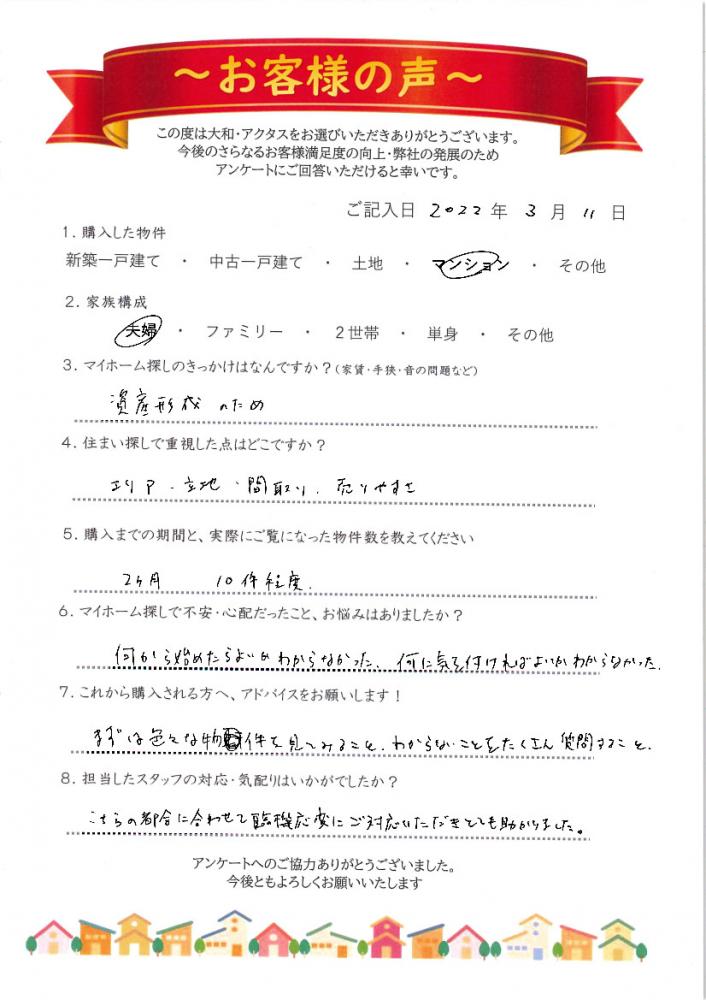 ～お客様の声～
この度は大和・アクタスをお選びいただきありがとうございます。
今後のさらなるお客様満足度の向上・弊社の発展のため
アンケートにご回答いただけると幸いです。
ご記入日 2022 年 3 月 11 日
1. 購入した物件
新築一戸建て ・ 中古一戸建て ・ 土地 ・ マンション ・ その他
2. 家族構成
夫婦 ・ ファミリー ・ 2世帯 ・ 単身 ・ その他
3. マイホーム探しのきっかけはなんですか？(家賃・手狭・音の問題など)
資産形成のため
4. 住まい探しで重視した点はどこですか？
エリア・立地・間取り・売りやすさ
5. 購入までの期間と、実際にご覧になった物件数を教えてください
2ヶ月 10件程度.
6. マイホーム探しで不安・心配だったこと、お悩みはありましたか？
何から始めたらよいかわからなかった、何に気を付ければよいかわからなかった.
7. これから購入される方へ、アドバイスをお願いします！
まずは色々な物件を見てみること、わからないことをたくさん質問すること.
8. 担当したスタッフの対応・気配りはいかがでしたか？
こちらの都合に合わせて臨機応変にご対応いただきとても助かりました。
アンケートへのご協力ありがとうございました。
今後ともよろしくお願いいたします